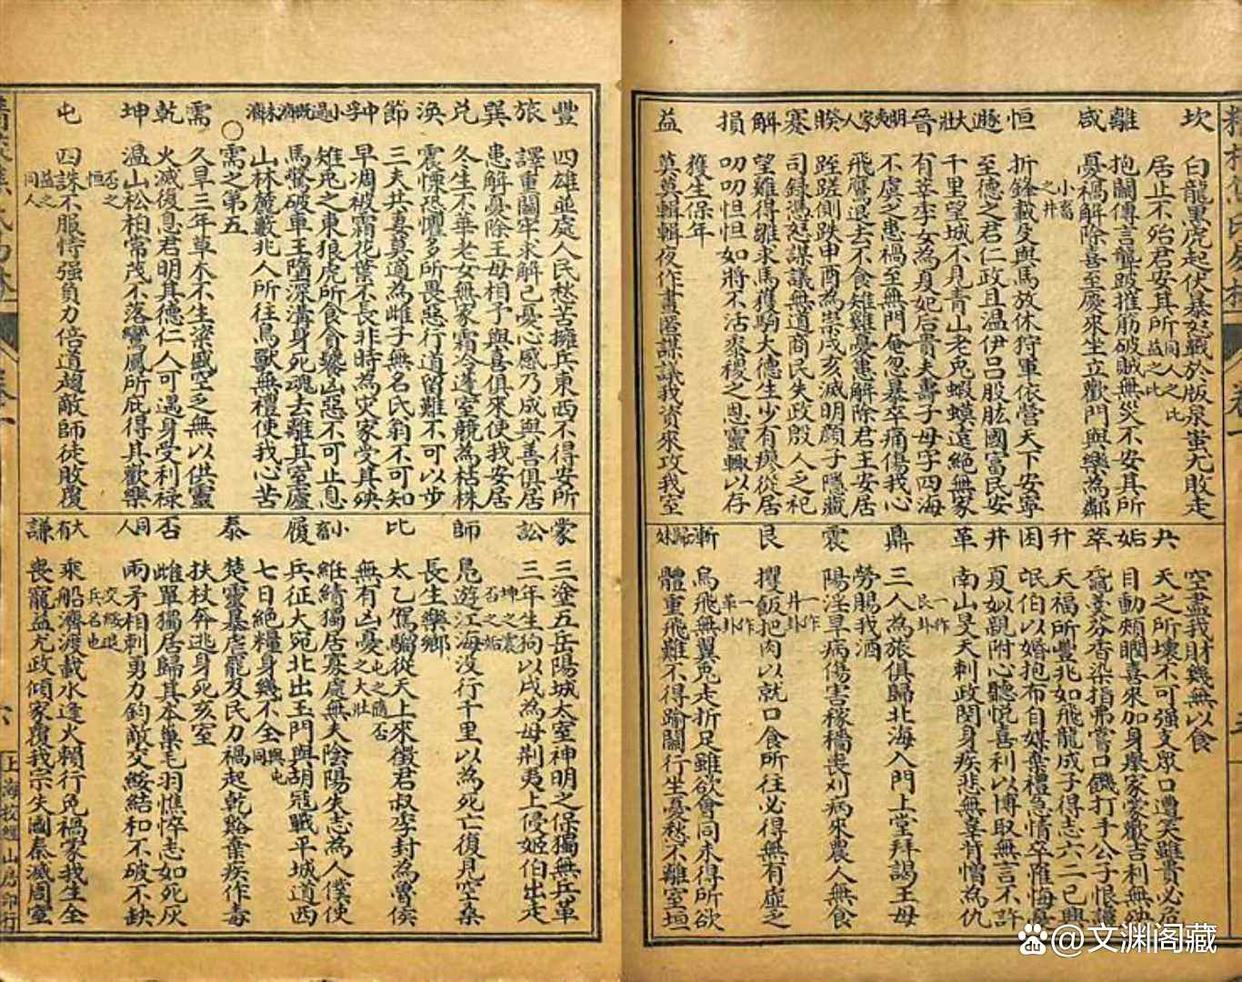 坎 白龍黑虎起伏暴怒戰於版泉蚩尤敗走
居止不殆君安其所 同人之比 益之比
離 抱關傳言聾跛摧筋破賊無災不安其所
咸 憂禍解除喜至慶來坐立歡門與樂為鄰
小畜之井
恒 折鋒載殳輿馬放休狩軍依營天下安寧
遯 至德之君仁政且溫伊呂股肱國富民安
大壯 千里望城不見青山老兔蝦蟆遠絕無家
晉 有莘季女為夏妃后貴夫壽子母字四海
明夷 不虞之患禍至無門奄忽暴卒痛傷我心
家人 飛鷹退去不食雉雞憂患解除君王安居
睽 蹉側跌申酉為祟戌亥滅明顏子隱藏
蹇 司錄憑怒謀議無道商民失政殷人之祀
解 望雞得雛求馬獲駒大德生少有瘳從居
損 叨叨怛怛如將不活黍稷之恩靈輒以存
獲生保年
益 莫莫輯輯夜作晝匿謀議我資來攻我室
空盡我財幾無以食
夬 天之所壞不可強支眾口遭笑雖貴必危
姤 目動頰瞤喜來加身舉家蒙歡吉利無殃
萃 竈羹芬香染指弗嘗口饑打手公子恨讒
升 天福所豐兆如飛龍成子得志六二已興
困 氓伯以婚抱布自媒棄禮急情卒罹悔憂
井 夏姒親附心聽悅喜利以博取無言不許
革 南山昊天刺政閔身疾悲無辜背憎為仇
鼎 三人為旅俱歸北海入門上堂拜謁王母
勞賜我酒 一作艮卦
震 陽淫旱病傷害稼穡喪刈病來農人無食
一作井卦
艮 攫飯把肉以就口食所往必得無有虛乏
一作革卦
漸 烏飛無翼兔走折足雖欲會同未得所欲
歸妹 體重飛難不得踰關行生憂愁不離室垣
豐 四雄並處人民愁苦擁兵東西不得安所
旅 譯重關牢求解已憂心感乃成與善俱居
巽 患解憂除王母相予與喜俱來使我安居
兌 冬生不華老女無家霜冷蓬室競為枯株
渙 震慄恐懼多所畏惡行道留難不可以步
節 三夫共妻莫適為雌子無名氏翁不可知
中孚 早凋被霜花葉不長非時為災家受其殃
小過 雉兔之東狼虎所食貪饕凶惡不可止息
既濟 馬驚破車王墮深溝身死魂去離其室廬
未濟 山林麓藪非人所往鳥獸無禮使我心苦
○需之第五
需 久旱三年草木不生粢盛空乏無以供靈
乾 火滅復息君明其德仁人可遇身受利祿
坤 溫山松柏常茂不落鸞鳳所庇得其歡樂
否之恒
屯 四誅不服恃強負力倍道趨敵師徒敗覆
益之同人
蒙 三塗五岳陽城大室神明之保獨無兵革
訟 三年生狗以戌為母荆夷上侵姬伯出走
坤之震 否之姤
師 鳧遊江海沒行千里以為死亡復見空桑
長生樂鄉
比 太乙駕騮從天上來徵君叔季封為魯侯
無有凶憂 屯之隨 否之大壯
小畜 維緒獨居寡處無夫陰陽失志為人僕使
履 兵征大宛北出玉門與胡寇戰平城道西
七日絕糧身幾不全 與屯同
泰 楚靈暴虐罷及民力禍起乾谿棄疾作毒
扶杖奔逃身死亥室
否 雌單獨居歸其本巢毛羽憔悴志如死灰
同人 兩矛相刺勇力鈞敵交綏結和不破不缺
交綏退兵名也
大有 乘船濟渡載水逢火賴行免禍家我生全
謙 喪寵益尤政傾家覆我宗失國秦滅周室
六
上海校經山房印行
@文渊阁藏